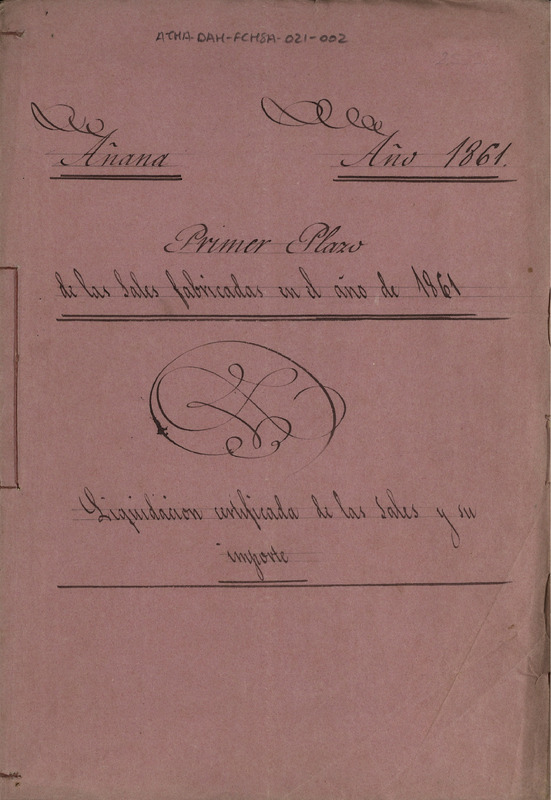 ATHA-DAH-FCHSA-021-002
Añana
Año 1861.
Primer Plazo
de las Sales fabricadas en el año de 1861
Liquidacion certificada de las Sales y su
importe